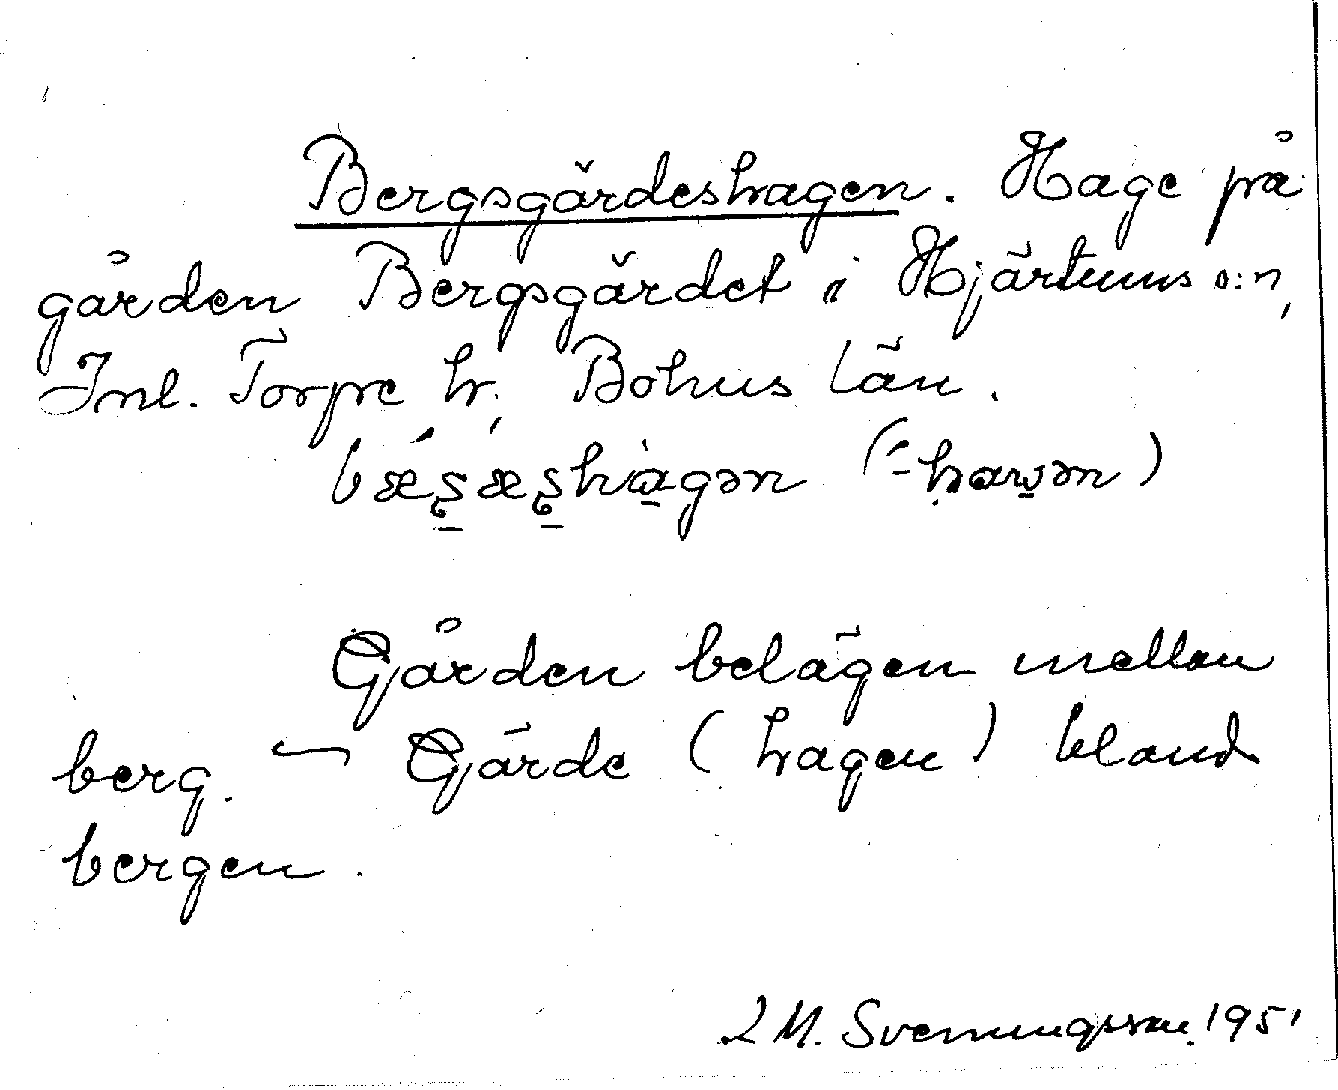 Bergsgärdeshagen. Hage på
gården Bergsgärdet i Hjärtums s:n,
Inl. Torpe hr, Bohus län.
Gården belägen mellan
berg. Gärde (hagen) bland
bergen.
M. Svenningsson 1951